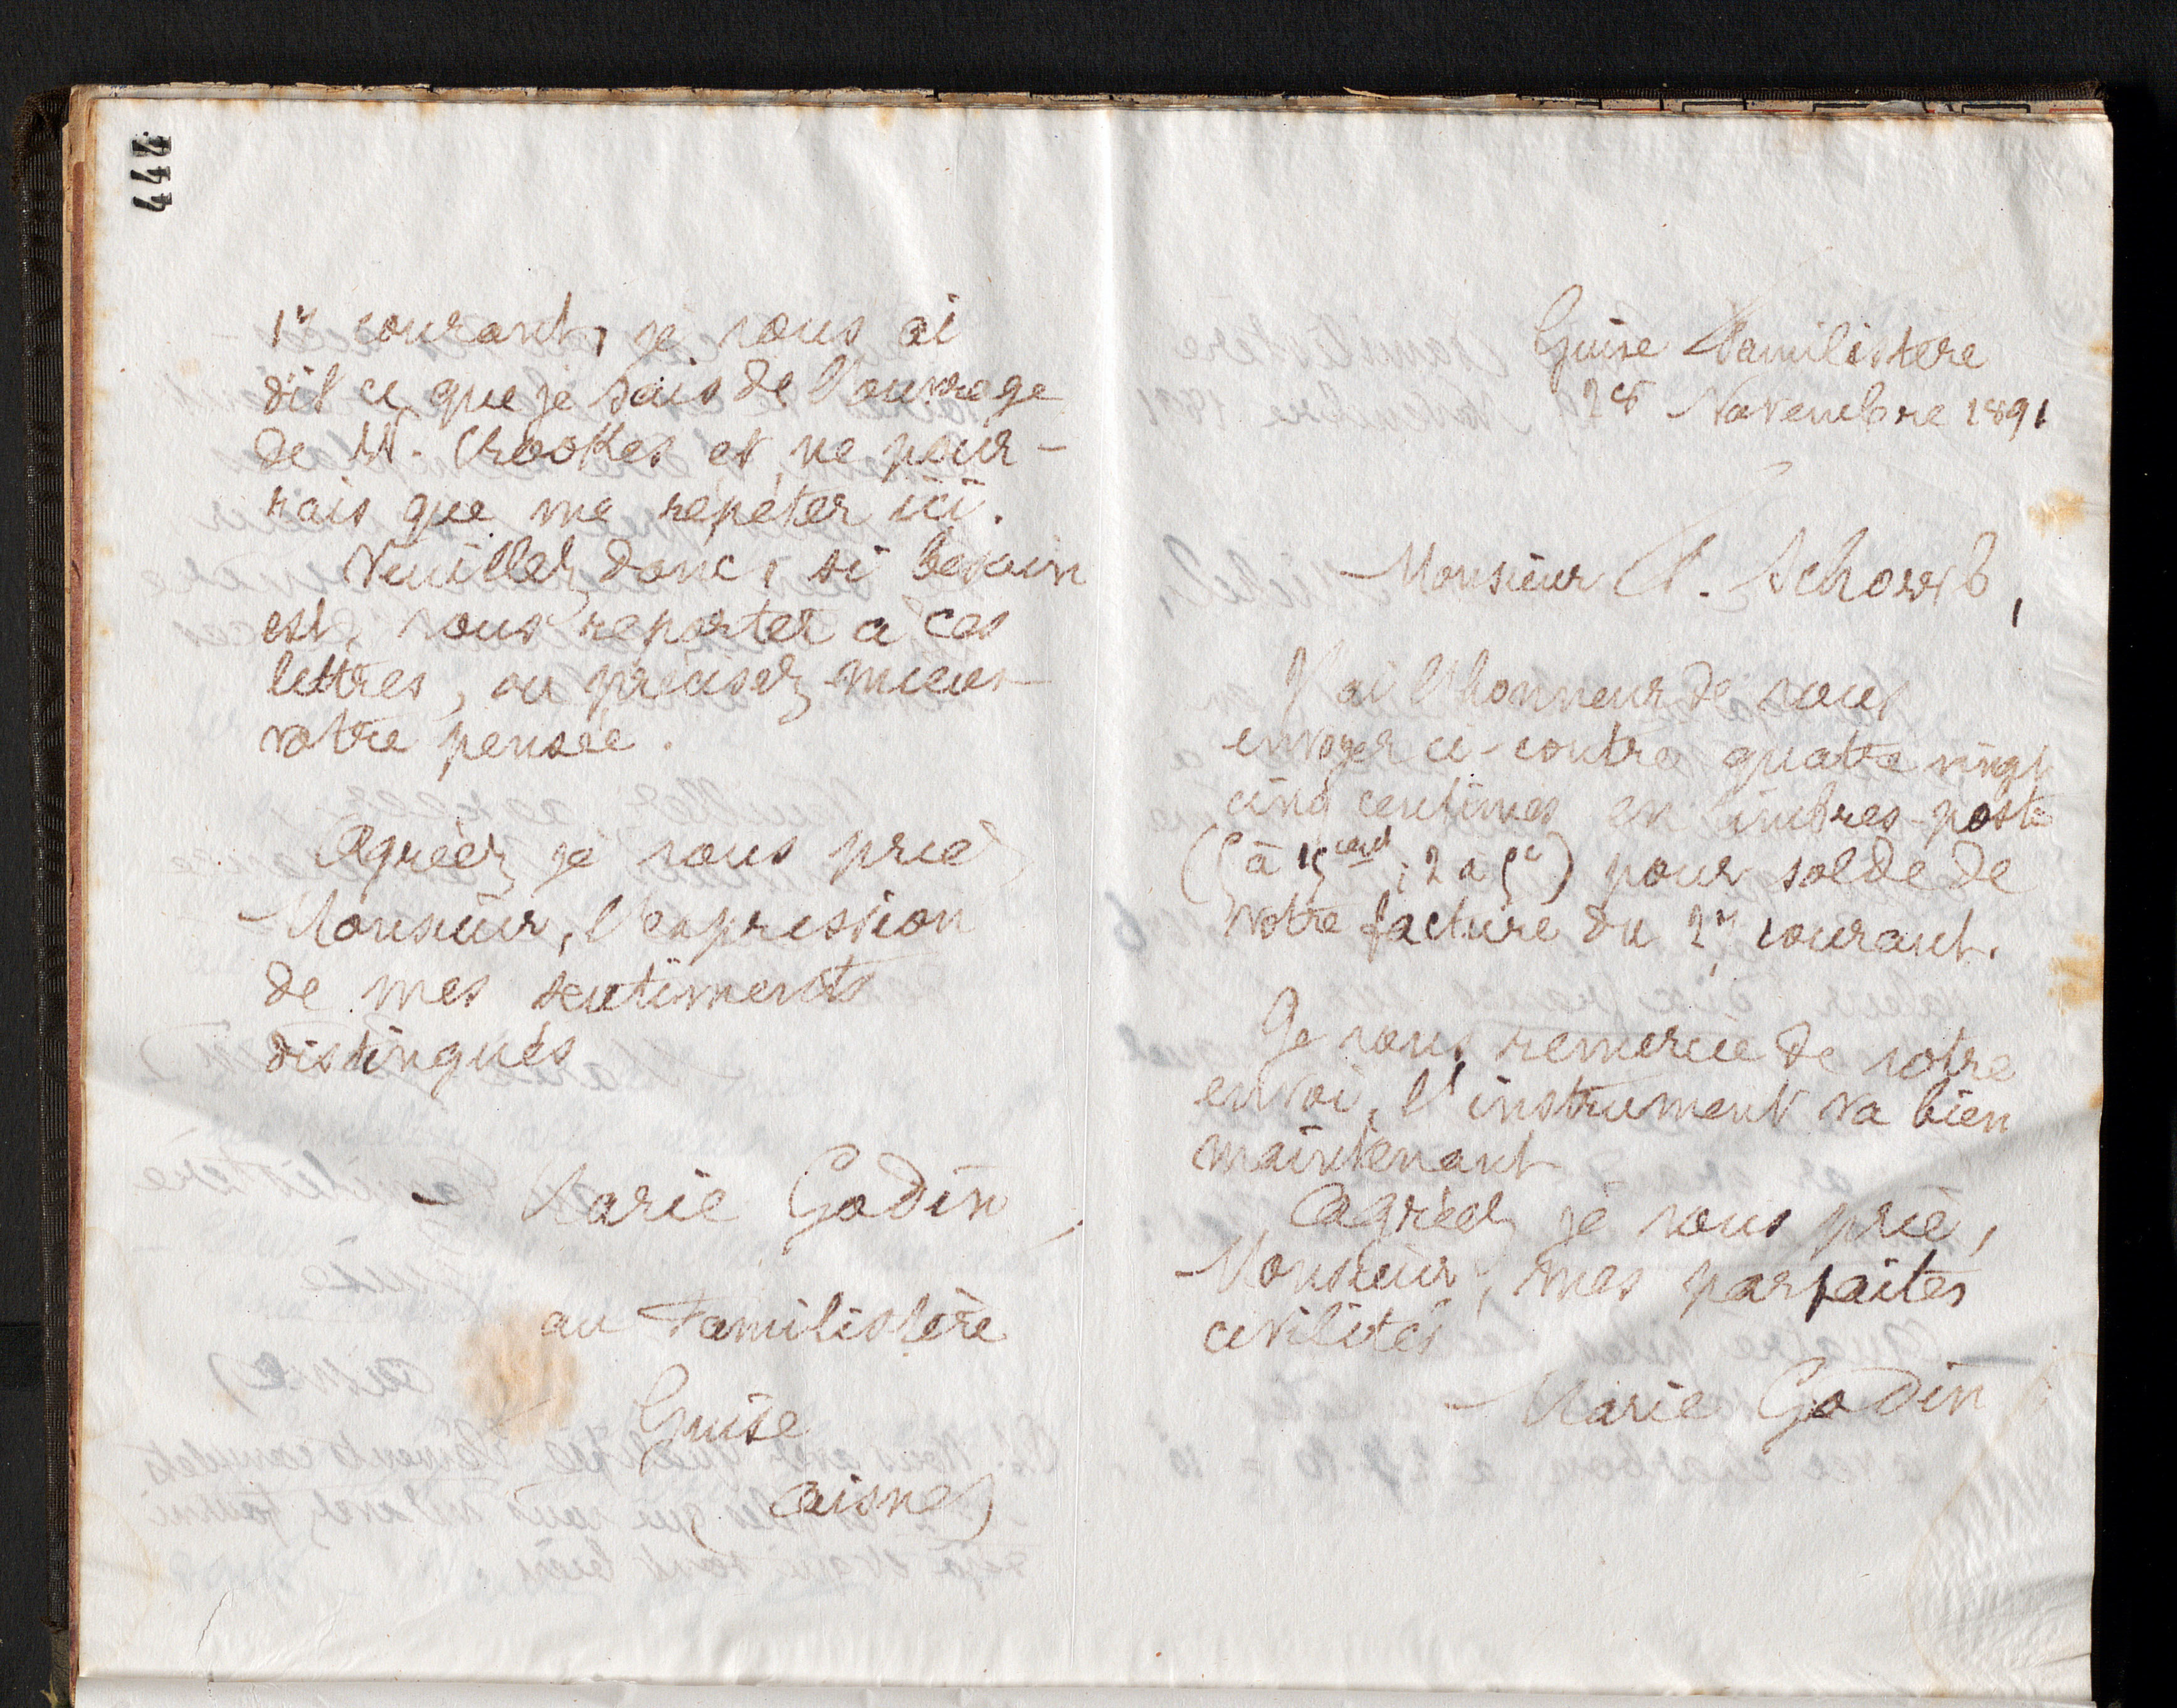 244
1er courant, je vous ai
dit ce que je sais de l'ouvrage
de W. Crookes et ne pour-
rais que me répéter ici.
Veuillez donc, si besoin
est, vous reporter à ces
lettres, ou précisez mieux
votre pensée.
Agréez je vous prie
Monsieur, l'expression
de mes sentiments
distingués
Marie Godin
au Familistère
Guise
Aisne
Guise Familistère
Novembre 1891
Monsieur
J'ai l'honneur de vous
envoyer ci-contre quatre vingt
cinq centimes en timbres-poste
(5 à 15 cent ; 2 à 5 c) pour solde de
votre facture du 2 courant.
Je vous remercie de votre
envoi, l'instrument va bien
maintenant
Agréez je vous prie,
Monsieur, mes parfaites
civilités
Marie Godin